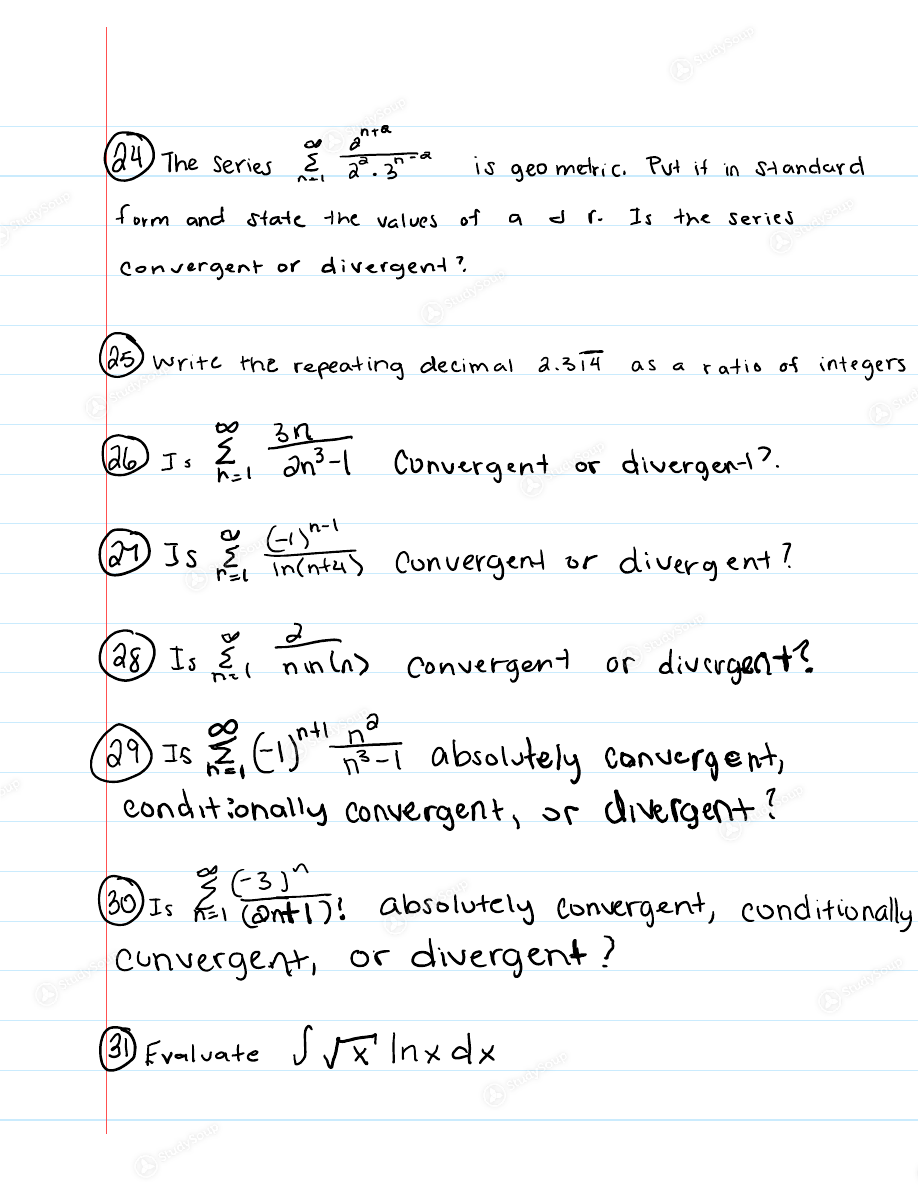 24 The series ∞ Σ n=1 2^(n+2) / (2^2 · 3^(n-2)) is geometric. Put it in standard
form and state the values of a & r. Is the series
convergent or divergent?
25 Write the repeating decimal 2.3\overline{14} as a ratio of integers
26 Is ∞ Σ n=1 3n / (2n^3-1) Convergent or divergent?
27 Is ∞ Σ n=1 (-1)^(n-1) / ln(n+4) Convergent or divergent?
28 Is ∞ Σ n=1 2 / (n ln(n)) convergent or divergent?
29 Is ∞ Σ n=1 (-1)^(n+1) n^2 / (n^3-1) absolutely convergent,
conditionally convergent, or divergent?
30 Is ∞ Σ n=1 (-3)^n / (2n+1)! absolutely convergent, conditionally
convergent, or divergent?
31 Evaluate ∫ √x ln x dx
StudySoup